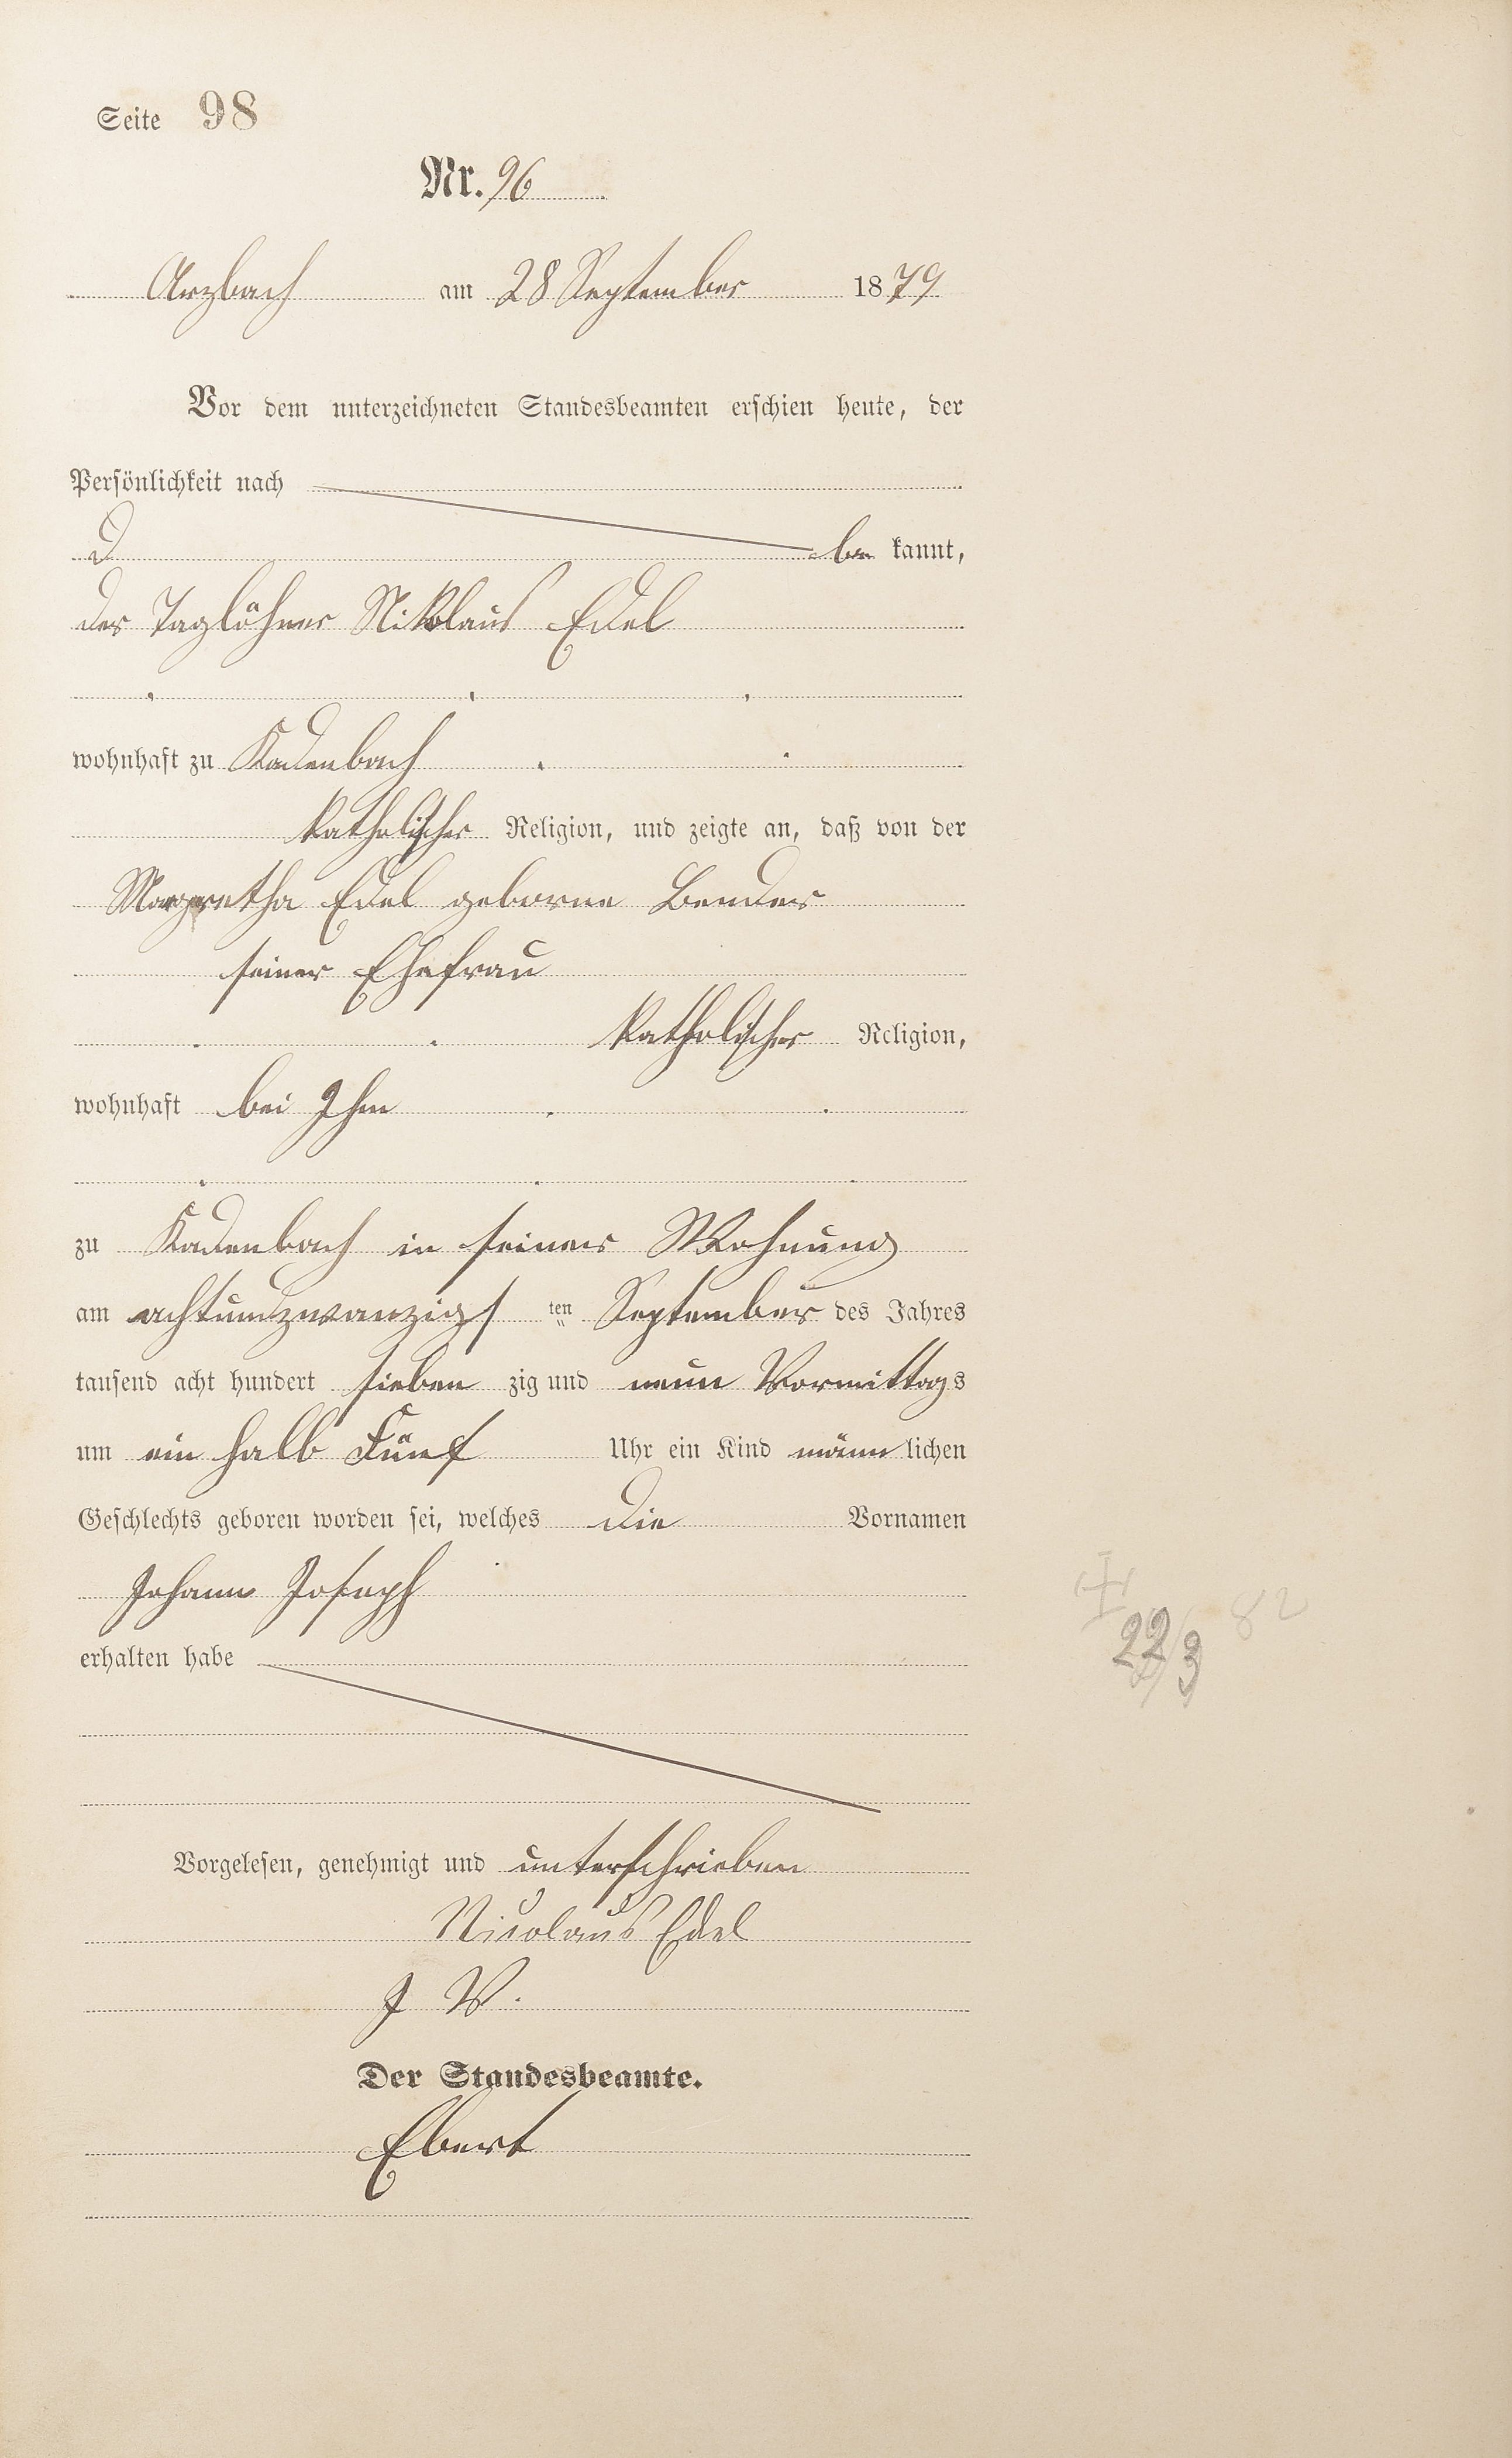 Seite 98
Nr. 96
Arzbach am 28 September 1879
Vor dem unterzeichneten Standesbeamten erschien heute, der
Persönlichkeit nach
d be kannt,
der Taglöhner Nikolaus Edel
wohnhaft zu Kadenbach
katholischer Religion, und zeigte an, daß von der
Margretha Edel geborne Bender
seiner Ehefrau
katholischer Religion,
wohnhaft bei Ihm
zu Kadenbach in seiner Wohnung
am achtundzwanzigs ten September des Jahres
tausend acht hundert sieben zig und neun Vormittags
um ein halb Fünf Uhr ein Kind männ lichen
Geschlechts geboren worden sei, welches die Vornamen
Johann Joseph
+ 22/3 82
erhalten habe
Vorgelesen, genehmigt und unterschrieben
Nicolaus Edel
J V.
Der Standesbeamte.
Ebert